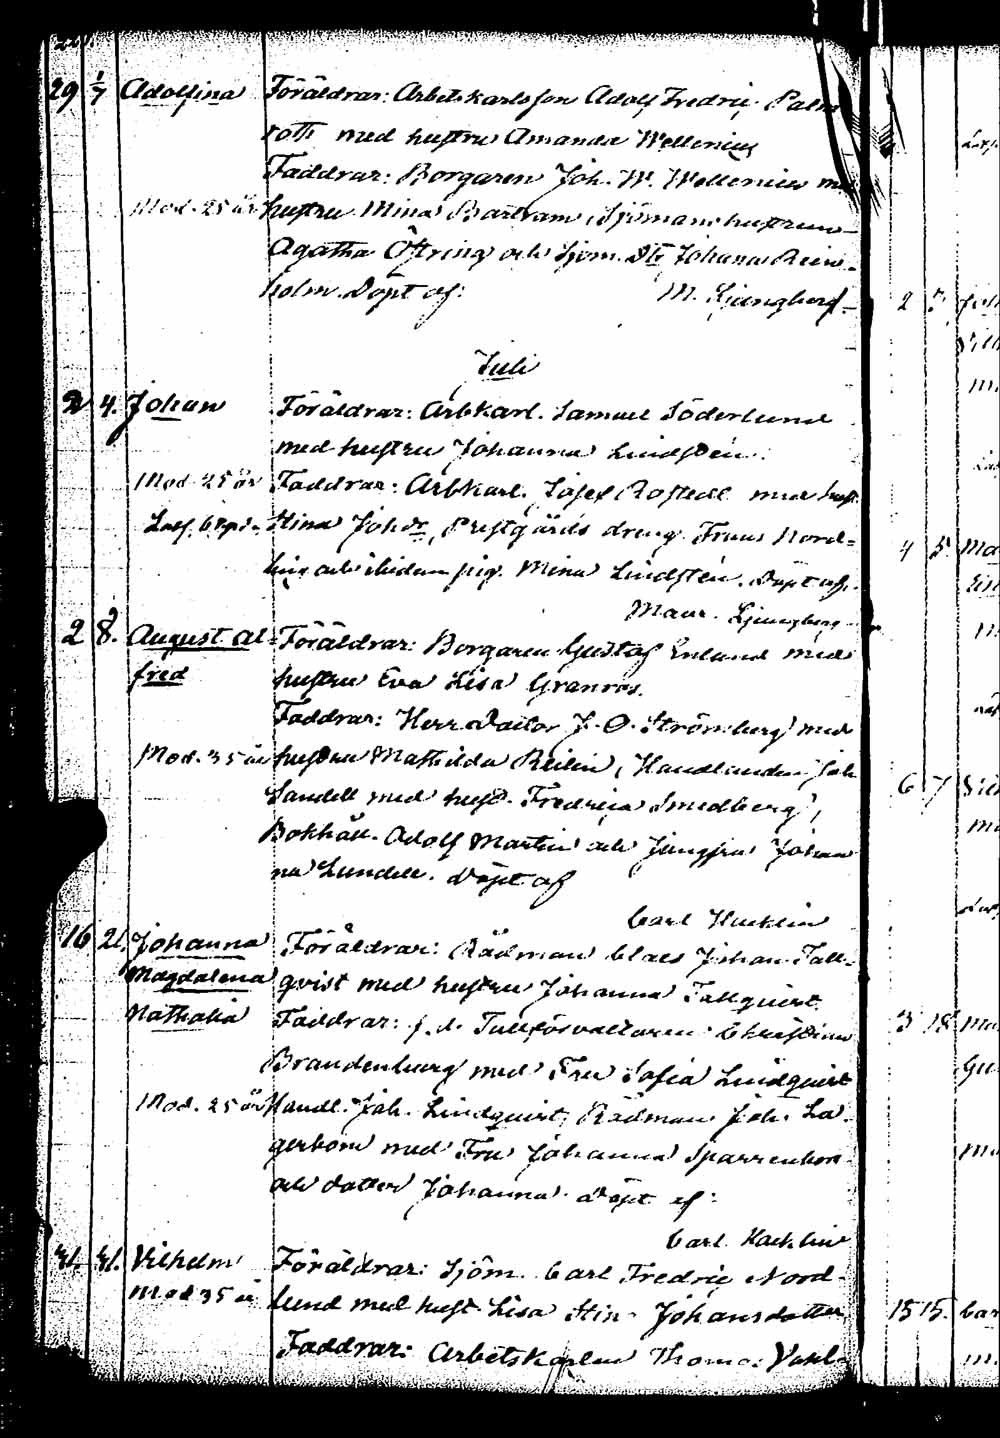 29 1/7 Adolfina Föräldrar: Arbetskarlsson Adolf Fredric Palm
roth med hustru Amanda Wellenius
Faddrar: Borgaren Joh. W. Wellenius med
Mod. 25 år hustru Mina Bartram, Sjömanshustrun
Agatha Öftring och Sjöm. Dtr Johana Rein-
holm. Döpt af: M. Ljungberg
Juli
2 4. Johan Föräldrar: Arbkarl. Samuel Söderlund
med hustru Johanna Lindstén.
Mod. 25 år Faddrar: Arbkarl. Josef Rostedt med hust.
Stina Johdr, Prestgårds dreng Frans Nord=
ling och ibidem pig. Mina Lindstén. Döpt af.
Maur. Ljungberg
2 8. August Al= Föräldrar: Borgaren Gustaf Enlund med
fred hustru Eva Lisa Granros.
Faddrar: Herr Doctor J. O. Strömberg med
Mod. 35 år hustru Mathilda Reilin, Handlanden Joh
Sandell med hust. Fredrica Smedberg,
Bokhåll. Adolf Martin och Jungfru Johan
na Lundell. Döpt af
Carl Hacklin
16 21. Johanna Föräldrar: Rådman Claes Johan Tall-
Magdalena qvist med hustru Johanna Tallquist
Nathalia Faddrar: f.d. Tullförvaltaren Christian
Brandenburg med Fru Sofia Lindquist
Mod. 25 år Handl. Joh. Lindquist, Rådman Joh. La-
gerbom med Fru Johanna
och dotter Johanna. Döpt af:
Carl Hacklin
Vilhelm Föräldrar: Sjöm. Carl Fredric Nord-
Mod 35 år lund med hust. Lisa Stin. Johansdotter
Faddrar: Arbetskarlen Thomas
2
4 5
6 7
15 15.